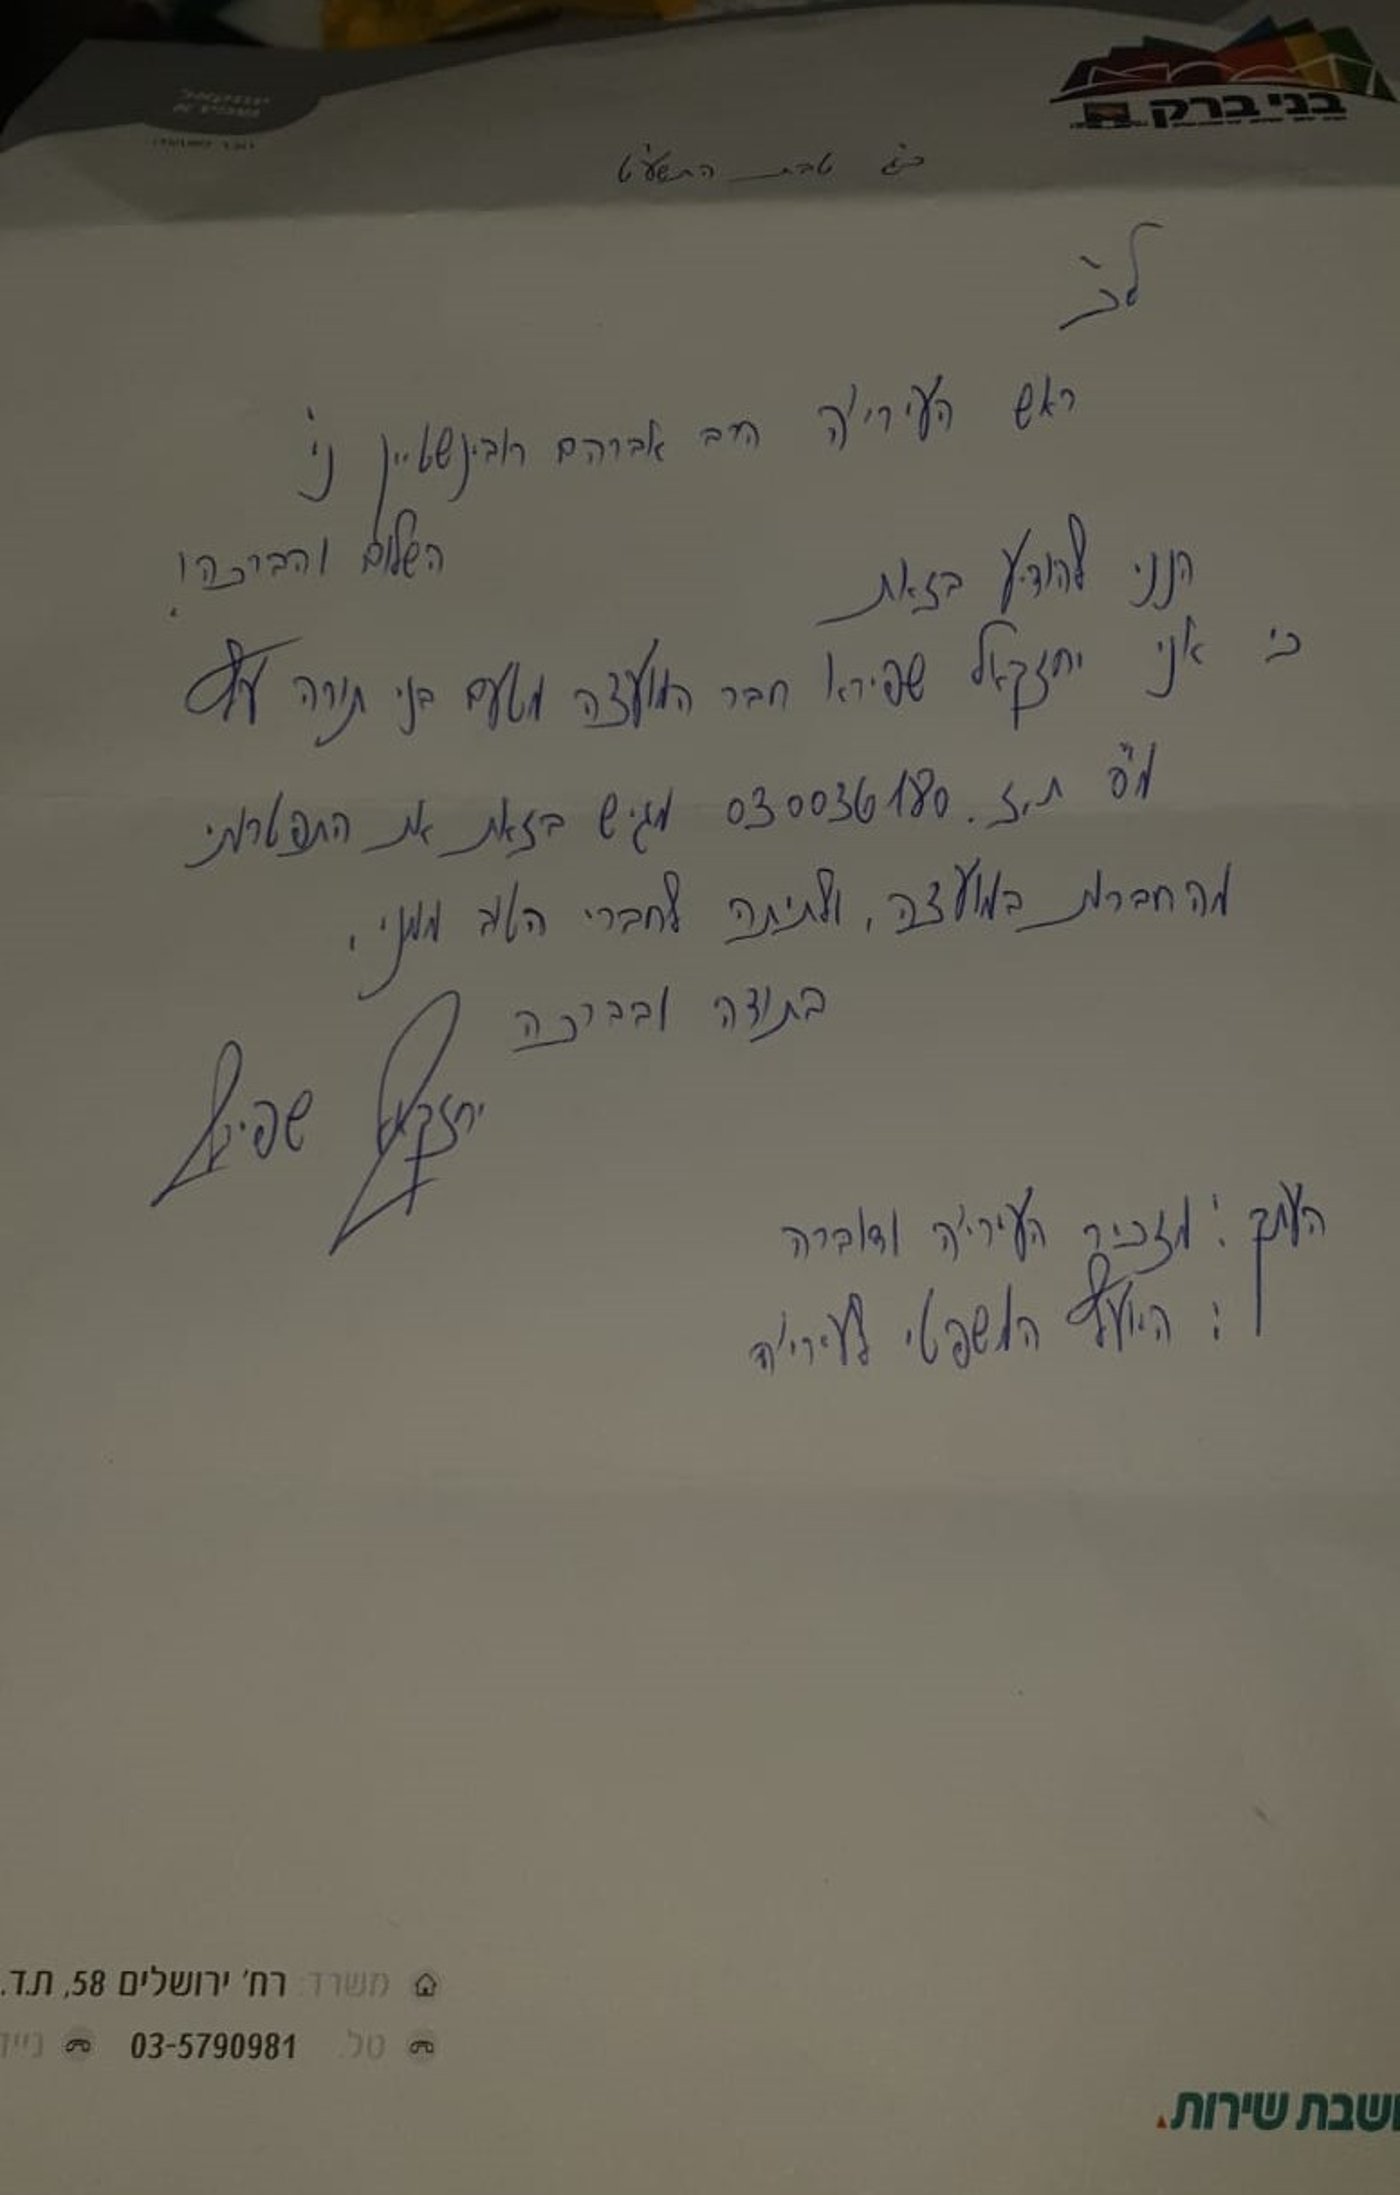 בני ברק
טבת התשע"ט
לכ'
ראש העירי'ה הרב אברהם רובינשטיין ני'
השלום והברכה!
הנני להודיע בזאת
כי אני יחזקאל שפירא חבר המועצה מטעם בני תורה עץ
מ"ס ת.ז. 030036180 מגיש בזאת את התפטרותי
מהחברות במועצה, ולתיתה לחברי הטוב ממני.
בתודה ובברכה
יחזקאל שפירא
העתק: מזכיר העירי'ה ודוברה
: היועץ המשפטי לעירי'ה
משרד: רח' ירושלים 58, ת.ד.
טל. 03-5790981 נייד
ושבת שירות.